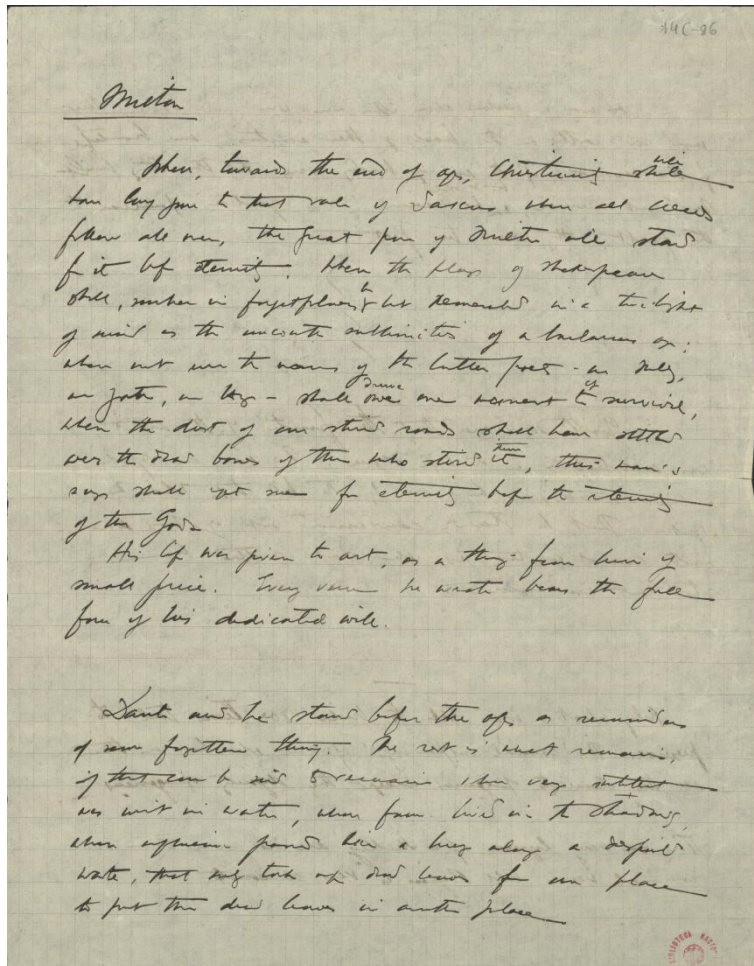 14C-86
Milton
When, towards the end of ages, Christianity shall
have long gone to that vale of when all creeds
follow all men, the great of Milton will stand
for it before eternity. When the plays of Shakespeare
shall, sunken in forgetfulness, be but remembered in a twilight
of mind as the uncouth sublimities of a barbarous age;
when not even the names of the latter poets - no Shelley,
no Goethe, no Hugo - shall own one moment of survival,
when the dust of our stirred roads shall have settled
over the dead bones of them who stirred it, this man's
songs shall yet for eternity before the eternity
of the Gods.
His life was given to art, as a thing from him of
small price. Every verse he wrote bears the full
form of his dedicated will.
Dante and he stand before the ages as reminders
of some forgotten thing. The rest is what remains,
if that can be said to remain, when very
was writ in water, when fame lived in the shadows,
when influence passed like a breeze along a
waste, that only took up dead leaves from one place
to put them dead leaves in another place
BIBLIOTECA NACIO